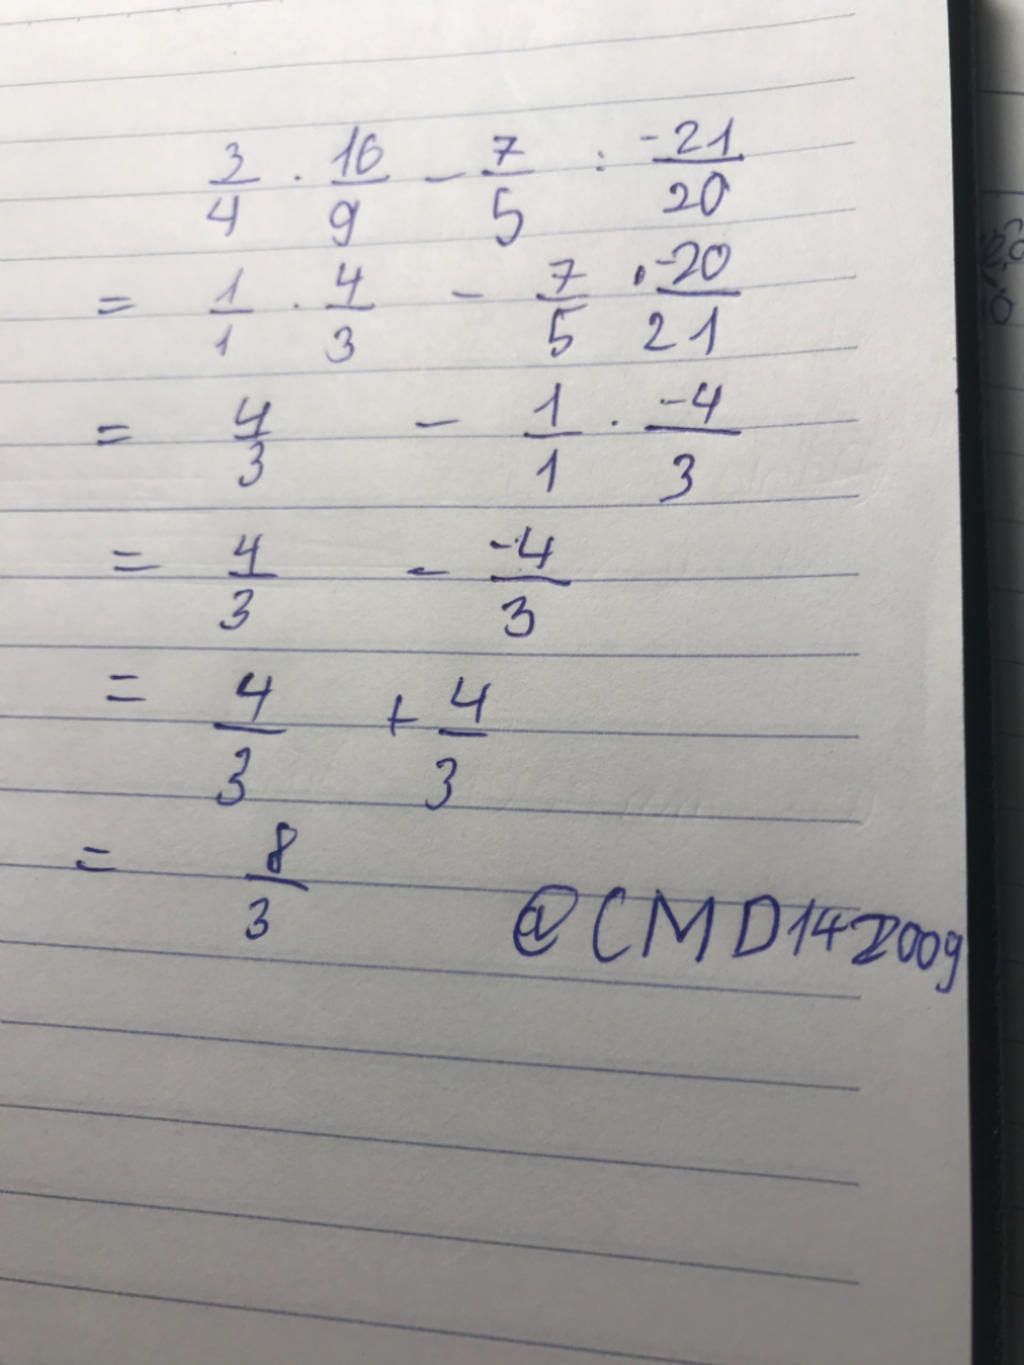 3/4 . 16/9 - 7/5 : -21/20
= 1/1 . 4/3 - 7/5 . -20/21
= 4/3 - 1/1 . -4/3
= 4/3 - -4/3
= 4/3 + 4/3
= 8/3
@CMD142009